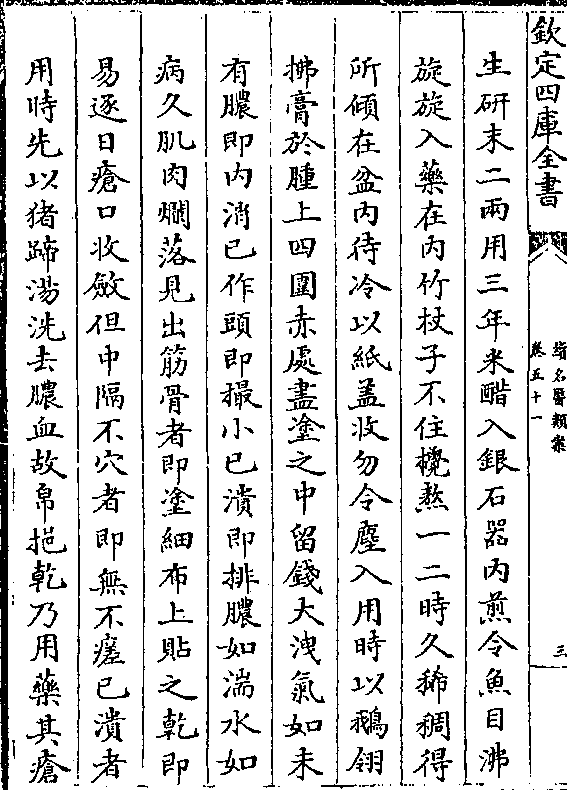 欽定四庫全書
續名醫類案
卷五十一
三
生研末二兩用三年米醋入銀石器內煎令魚目沸
旋旋入藥在內竹杖子不住攪熬一二時久稀稠得
所傾在盆內待冷以紙蓋收勿令塵入用時以鵝翎
拂膏於腫上四圍赤處盡塗之中留錢大洩氣如未
有膿即內消已作頭即撮小已潰即排膿如湍水如
病久肌肉爛落見出筋骨者即塗細布上貼之乾即
易逐日瘡口收斂但中隔不穴者即無不瘥已潰者
用時先以猪蹄湯洗去膿血故帛挹乾乃用藥其瘡